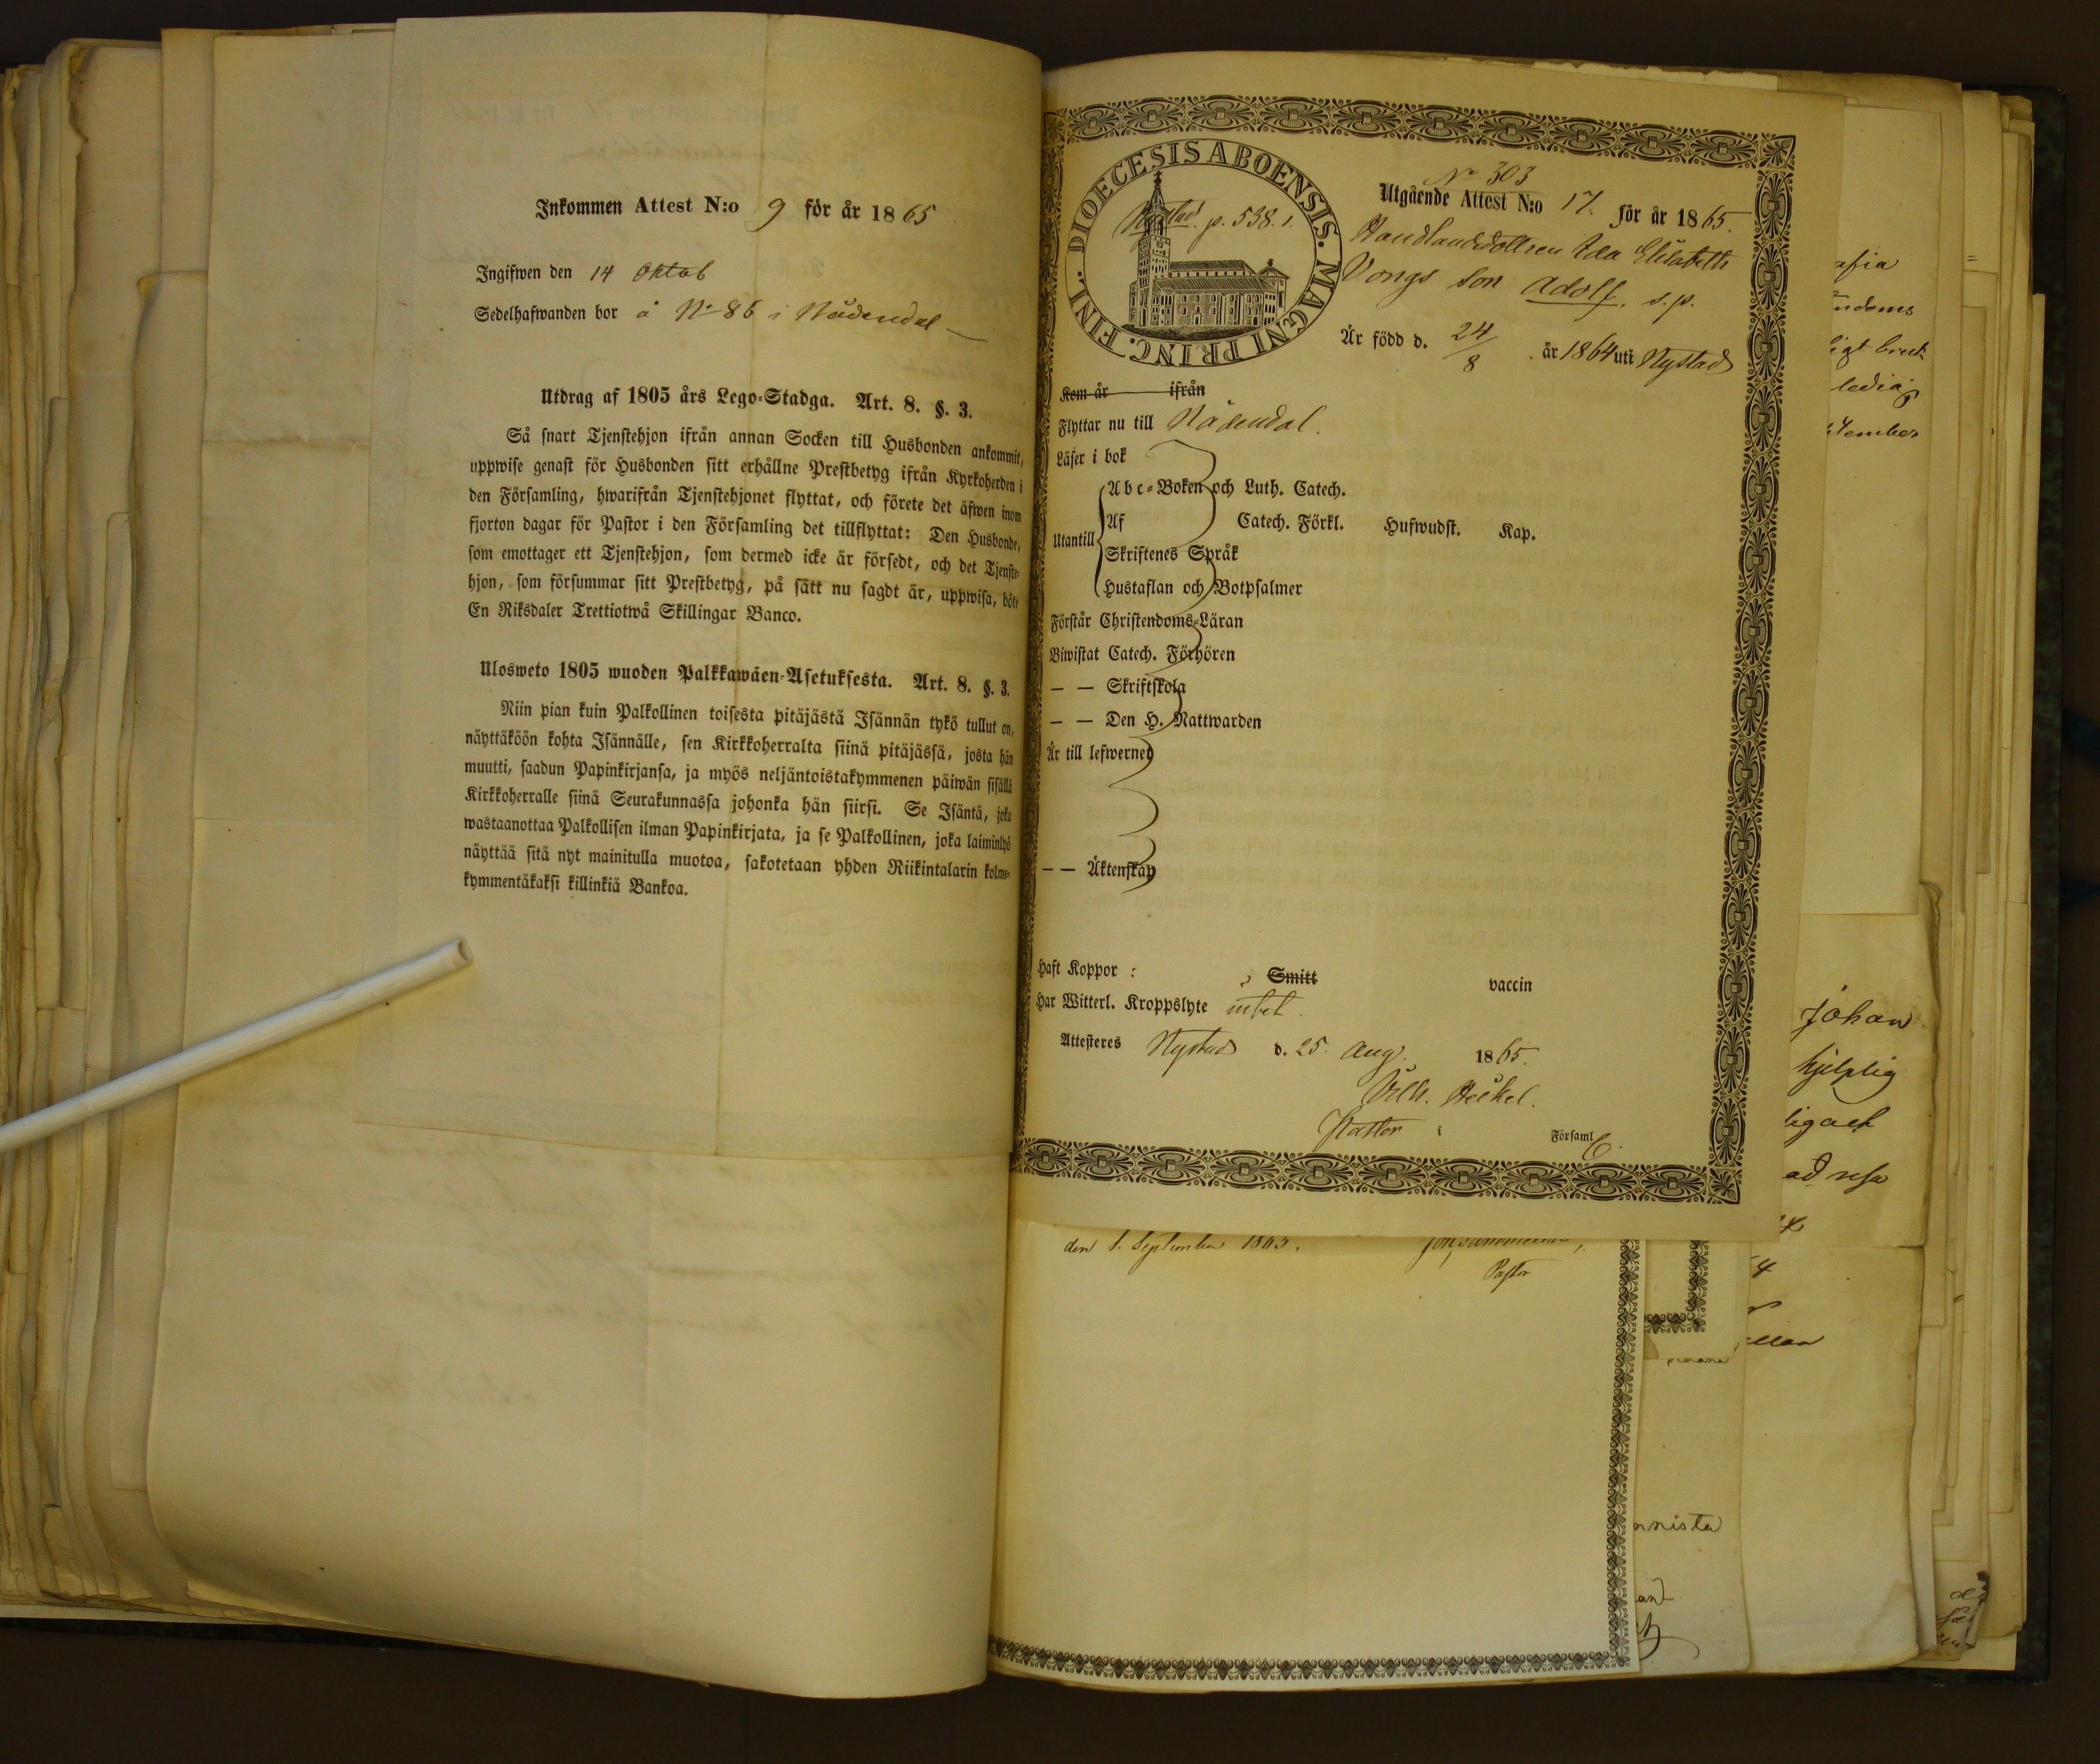 Inkommen Attest N:o 9 för år 1865
Ingifwen den 14 Oktob
Sedelhafwanden bor å No 86 i Nådendal
Utdrag af 1805 års Lego-Stadga. Art. 8. §. 3.
Så snart Tjenstehjon ifrån annan Socken till Husbonden ankommit,
uppwise genast för Husbonden sitt erhållne Prestbetyg ifrån Kyrkoherden i
den Församling, hwarifrån Tjenstehjonet flyttat, och förete det äfwen inom
fjorton dagar för Pastor i den Församling det tillflyttat: Den Husbonde,
som emottager ett Tjenstehjon, som dermed icke är försedt, och det Tjenste-
hjon, som försummar sitt Prestbetyg, på sätt nu sagdt är, uppwisa, böte
En Riksdaler Trettiotwå Skillingar Banco.
Ulosweto 1805 wuoden Palkkawäen-Asetuksesta. Art. 8. §. 3.
Niin pian kuin Palkollinen toisesta pitäjästä Isännän tykö tullut on,
näyttäköön kohta Isännälle, sen Kirkkoherralta siinä pitäjässä, josta hän
muutti, saadun Papinkirjansa, ja myös neljäntoistakymmenen päiwän sisällä
Kirkkoherralle siinä Seurakunnassa johonka hän siirsi. Se Isäntä, joka
wastaanottaa Palkollisen ilman Papinkirjata, ja se Palkollinen, joka laiminlyö
näyttää sitä nyt mainitulla muotoa, sakotetaan yhden Riikintalarin kolme-
kymmentäkaksi killinkiä Bankoa.
DIOECESIS ABOENSIS. MAGNI PRINC. FINL.
Nystad. p. 538. 1.
No 303
Utgående Attest N:o 17. för år 1865.
Handlandedottren Ida Elisabeth
Vongs son Adolf. s.p.
Är född d. 24/8 år 1864 uti Nystad
Kom år ifrån
Flyttar nu till Nådendal.
Läser i bok
Utantill
Abc-Boken och Luth. Catech.
Af Catech. Förkl. Hufwudst. Kap.
Skriftenes Språk
Hustaflan och Botpsalmer
Förstår Christendoms-Läran
Biwistat Catech. Förhören
— — Skriftskola
— — Den H. Nattwarden
Är till lefwernet
— — Äktenskap
Haft Koppor : , Smitt vaccin
Har Witterl. Kroppslyte intet.
Attesteres Nystad d. 25. Aug. 1865.
Vilh. Heikel.
Pastor i Församl
den 1. September 1865.
Pastor
afia
ndoms
ledig
tember
Johan
hjelplig
ligaet
ad resa
4
ellan
nnista
and